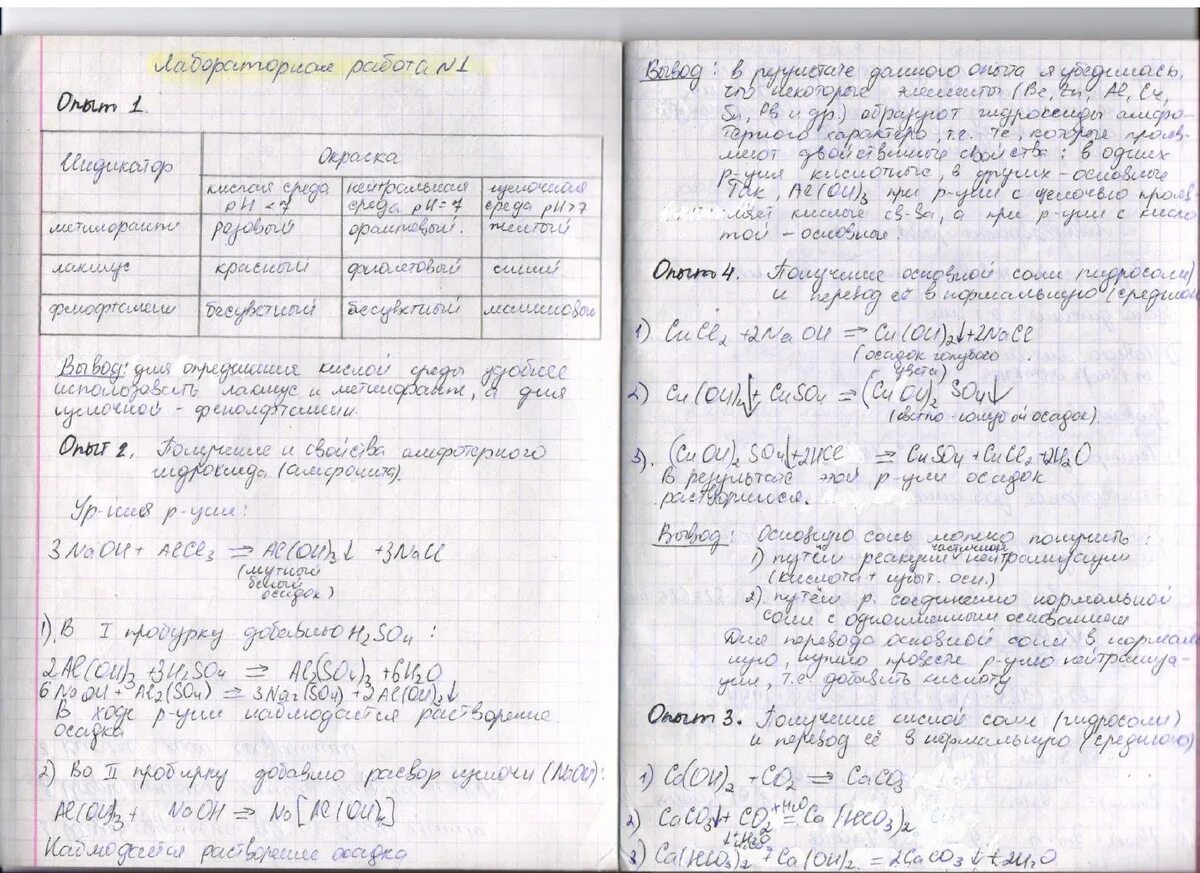 Лабораторная работа №1
Опыт 1.
Индикатор
Окраска
кислая среда pH < 7
нейтральная среда pH = 7
щелочная среда pH > 7
метилоранж розовый оранжевый. желтый
лакмус красный фиолетовый синий
фенофталеин бесцветный бесцветный малиновый
Вывод: для определения кислой среды удобнее
использовать лакмус и метилоранж, а для
щелочной – фенолфталеин.
Опыт 2. Получение и свойства амфотерного
гидроксида. (амфолита).
Ур-ния р-ции:
3 NaOH + AlCl3 ⇒ Al(OH)3↓ + 3NaCl
(мутный
белый
осадок)
1). В I пробирку добавляю H2SO4 :
2Al(OH)3 + 3H2SO4 ⇒ Al2(SO4)3 + 6H2O
6 NaOH + Al2(SO4) ⇒ 3Na2(SO4) + 2Al(OH)3↓
В ходе р-ции наблюдается растворение
осадка
2) Во II пробирку добавляю расвор щелочи (NaOH):
Al(OH)3 + NaOH ⇒ Na[Al(OH)4]
Наблюдается растворение осадка
Вывод: в результате данного опыта я убедилась,
что некоторые элементы (Be, Zn, Al, Cr,
Sn, Pb и др.) образуют гидроксиды амфо-
терного характера, т.е. те, которые прояв-
ляют двойственные свойства: в одних
р-циях кислотные, в других – основные
Так, Al(OH)3 при р-ции с щелочью прояв-
ляет кислые св-ва, а при р-ции с кисло
той – основные.
Опыт 4. Получение основной соли (гидросоли)
и перевод её в нормальную (среднюю)
1) CuCl2 + 2NaOH ⇒ Cu(OH)2↓ + 2NaCl
(осадок голубого
цвета)
2) Cu(OH)2↓ + CuSO4 ⇒ (CuOH)2 SO4↓
(светло-голубой осадок)
3). (CuOH)2 SO4↓ + 2HCl ⇒ CuSO4 + CuCl2 + 2H2O
В результате этой р-ции осадок
растворился.
Вывод: Основную соль можно получить:
1) путём реакции частичной нейтрализации
(кислота + изыт. осн.)
2). путём р. соединению нормальной
соли с одноимённым основанием
Для перевода основной соли в нормаль
ную, нужно провести р-цию нейтрализа-
ции, т.е. добавить кислоту
Опыт 3. Получение кислой соли (гидросоли)
и перевод её в нормальную (среднюю)
1) Ca(OH)2 + CO2 ⇒ CaCO3
2) CaCO3↓ + CO2 +H2O = Ca(HCO3)2
3) Ca(HCO3)2 + Ca(OH)2 = 2CaCO3↓ + 2H2O